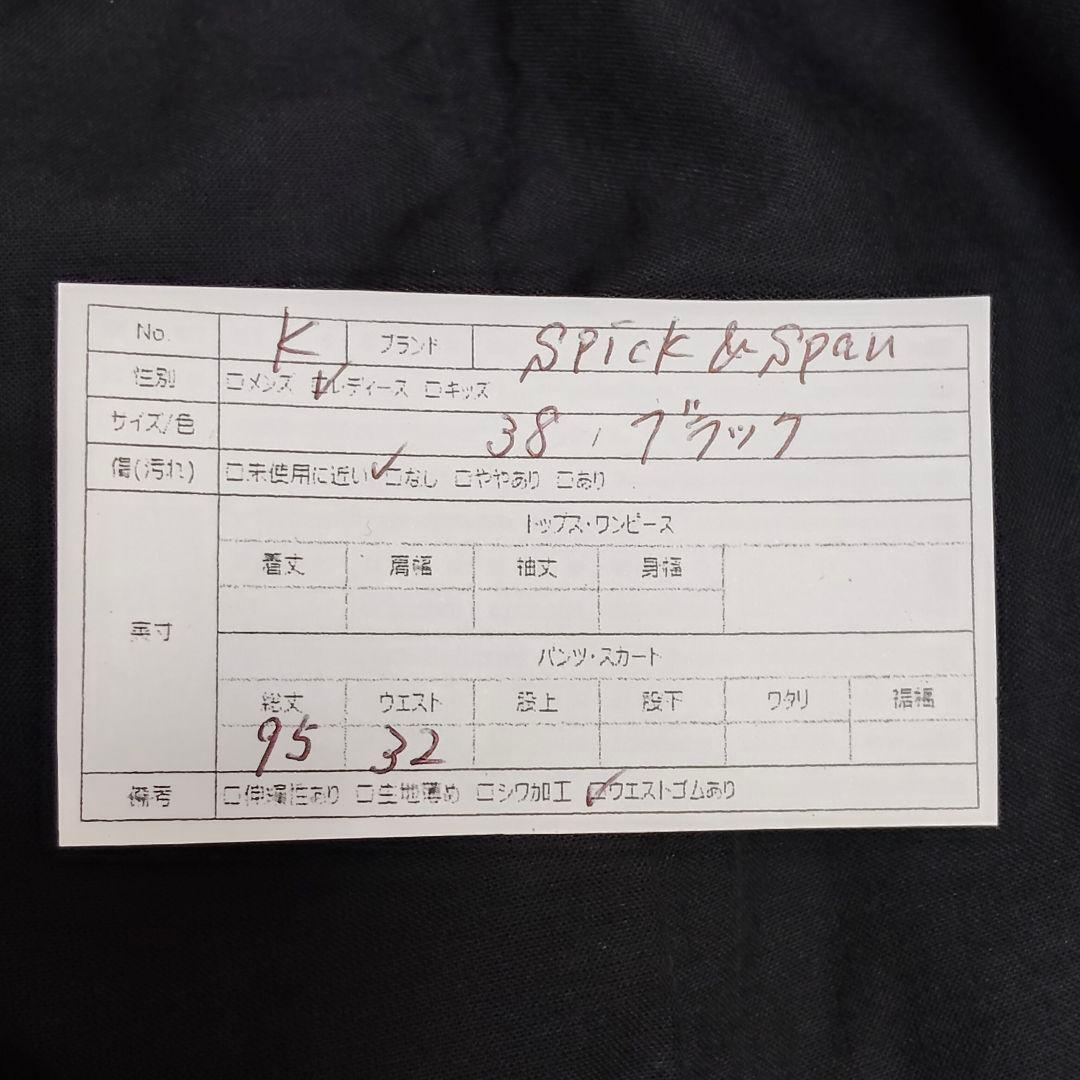 No. K ブランド Spick & Span
性別 □メンズ ☑レディース □キッズ
サイズ/色 38 / ブラック
傷(汚れ) □未使用に近い ☑なし □ややあり □あり
トップス・ワンピース
着丈 肩幅 袖丈 身幅
実寸
パンツ・スカート
総丈 ウエスト 股上 股下 ワタリ 裾幅
95 32
備考 □伸縮性あり □生地薄め □シワ加工 ☑ウエストゴムあり